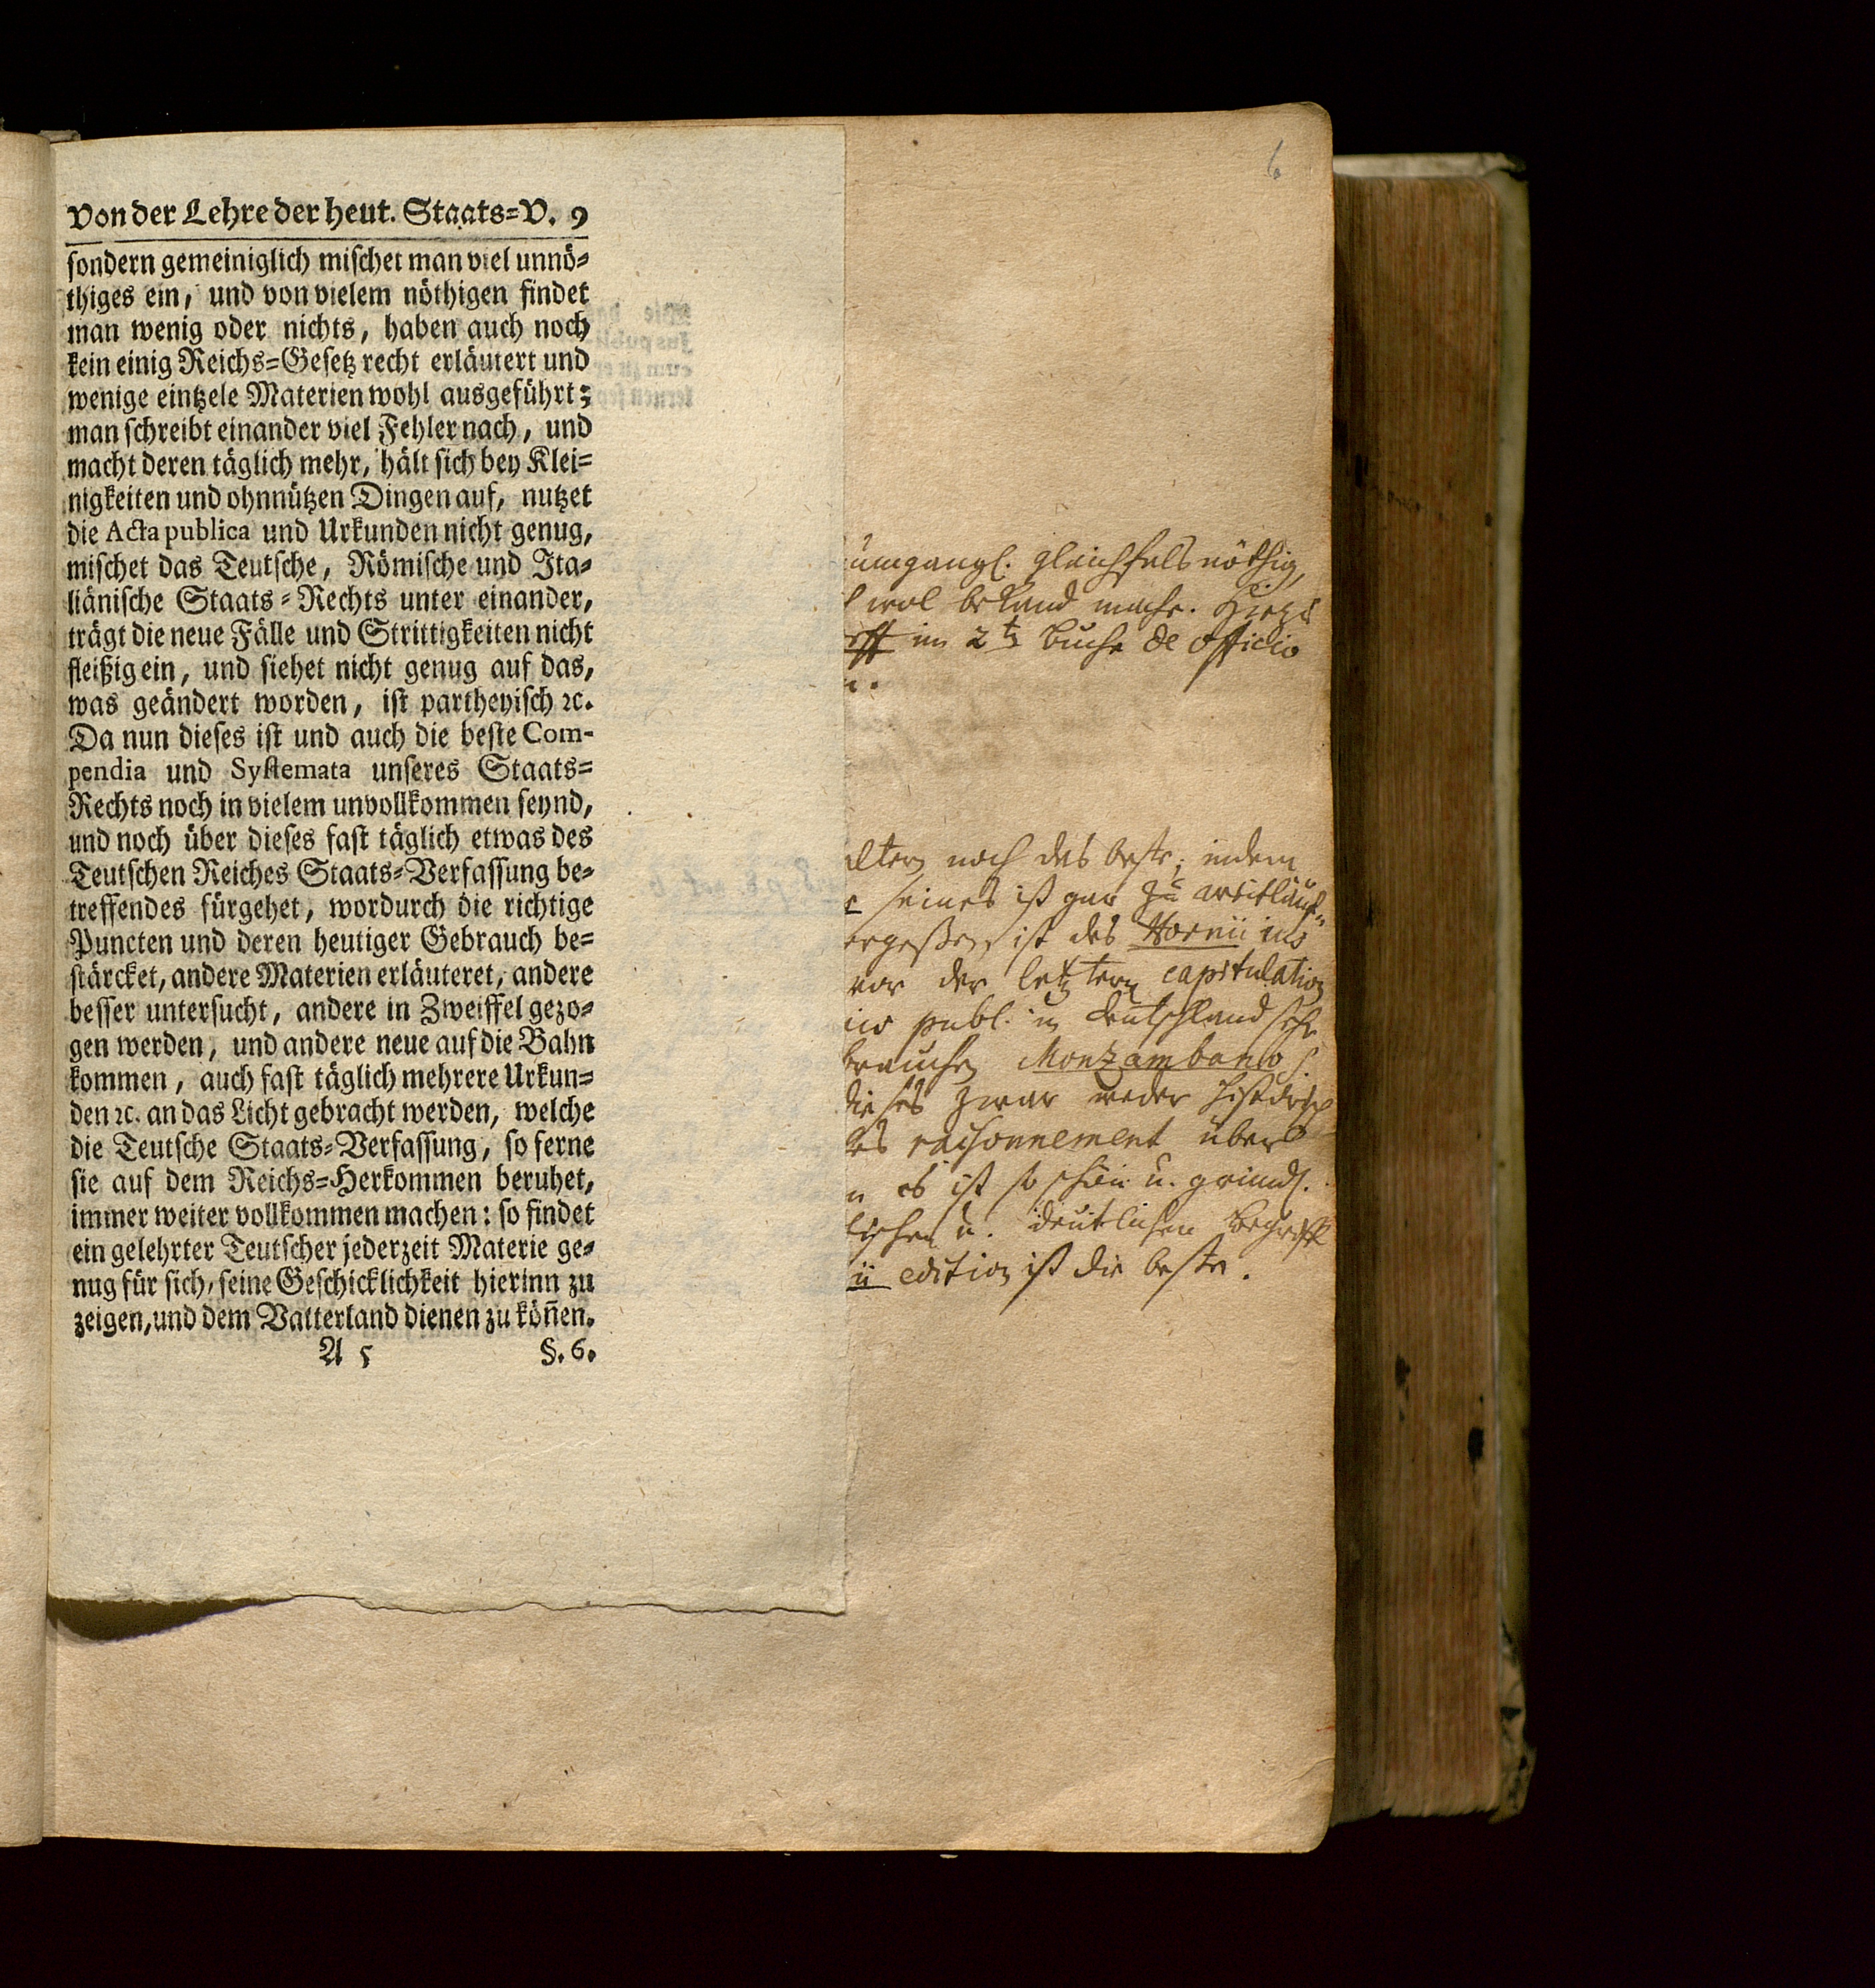 6
Von der Lehre der heut. Staats=V. 9
sondern gemeiniglich mischet man viel unnö=
thiges ein, und von vielem nöthigen findet
man wenig oder nichts, haben auch noch
kein einig Reichs=Gesetz recht erläutert und
wenige eintzele Materien wohl ausgeführt;
man schreibt einander viel Fehler nach, und
macht deren täglich mehr, hält sich bey Klei=
nigkeiten und ohnnützen Dingen auf, nutzet
die Acta publica und Urkunden nicht genug,
mischet das Teutsche, Römische und Ita=
liänische Staats=Rechts unter einander,
trägt die neue Fälle und Strittigkeiten nicht
fleißig ein, und siehet nicht genug auf das,
was geändert worden, ist partheyisch ꝛc.
Da nun dieses ist und auch die beste Com-
pendia und Systemata unseres Staats=
Rechts noch in vielem unvollkommen seynd,
und noch über dieses fast täglich etwas des
Teutschen Reiches Staats=Verfassung be=
treffendes fürgehet, wordurch die richtige
Puncten und deren heutiger Gebrauch be=
stärcket, andere Materien erläuteret, andere
besser untersucht, andere in Zweiffel gezo=
gen werden, und andere neue auf die Bahn
kommen, auch fast täglich mehrere Urkun=
den ꝛc. an das Licht gebracht werden, welche
die Teutsche Staats=Verfassung, so ferne
sie auf dem Reichs=Herkommen beruhet,
immer weiter vollkommen machen: so findet
ein gelehrter Teutscher jederzeit Materie ge=
nug für sich, seine Geschicklichkeit hierinn zu
zeigen, und dem Vatterland dienen zu köñen.
A 5 §. 6.
umgangl. gleichfals nöthig,
wol bekand mache.
im 2t Buche de officio
noch das beste, indem
seines ist gar zu weitläuf
ist des Hornii ius
vor der letztern capitulation
publ. in Teutschland sehr
brauchen Monzambano
dieses zwar weder historisch
raisonnement über
es ist so schön u. gründl.
u. deutlichen Begriff
edition ist die beste.